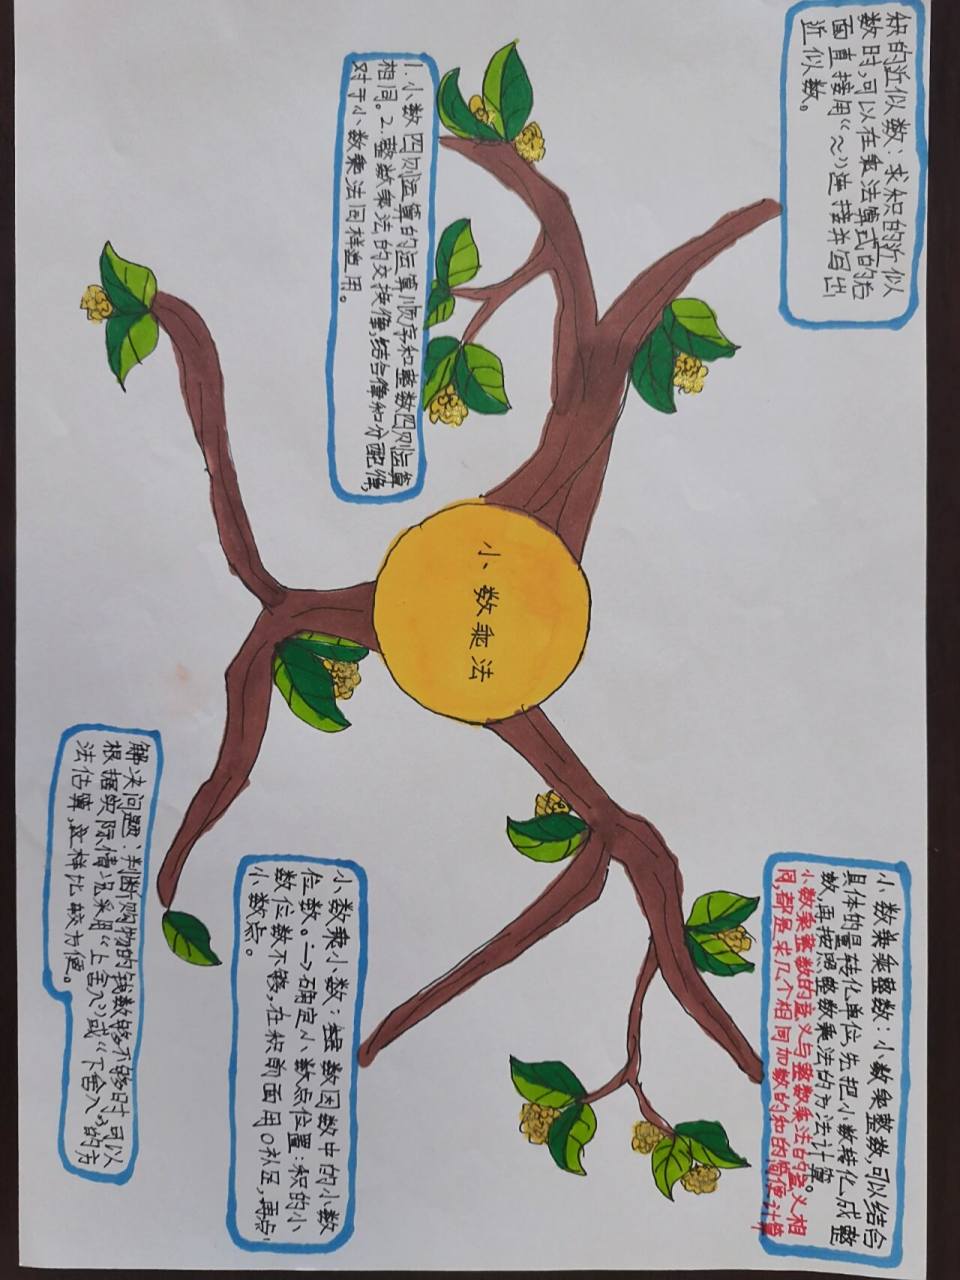 小数乘法
积的近似数:求积的近似
数时,可以在乘法算式的后
面直接用“≈”连接并写出
近似数。
1.小数四则运算的运算顺序和整数四则运算
相同。2.整数乘法的交换律,结合律和分配律,
对于小数乘法同样适用。
小数乘乘整数:小数乘整数,可以结合
具体的量转化单位先把小数转化成整
数,再按照整数乘法的方法计算。
小数乘整数的意义与整数乘法的意义相
同,都是求几个相同加数的和的简便计算
小数乘小数:数因数中的小数
位数。→确定小数点位置:积的小
数位数不够,在积前面用0补足,再点
小数点。
解决问题:判断购物的钱数够不够时,可以
根据实际情况采用“上舍入”或“下舍入”的方
法估算,这样比较方便。